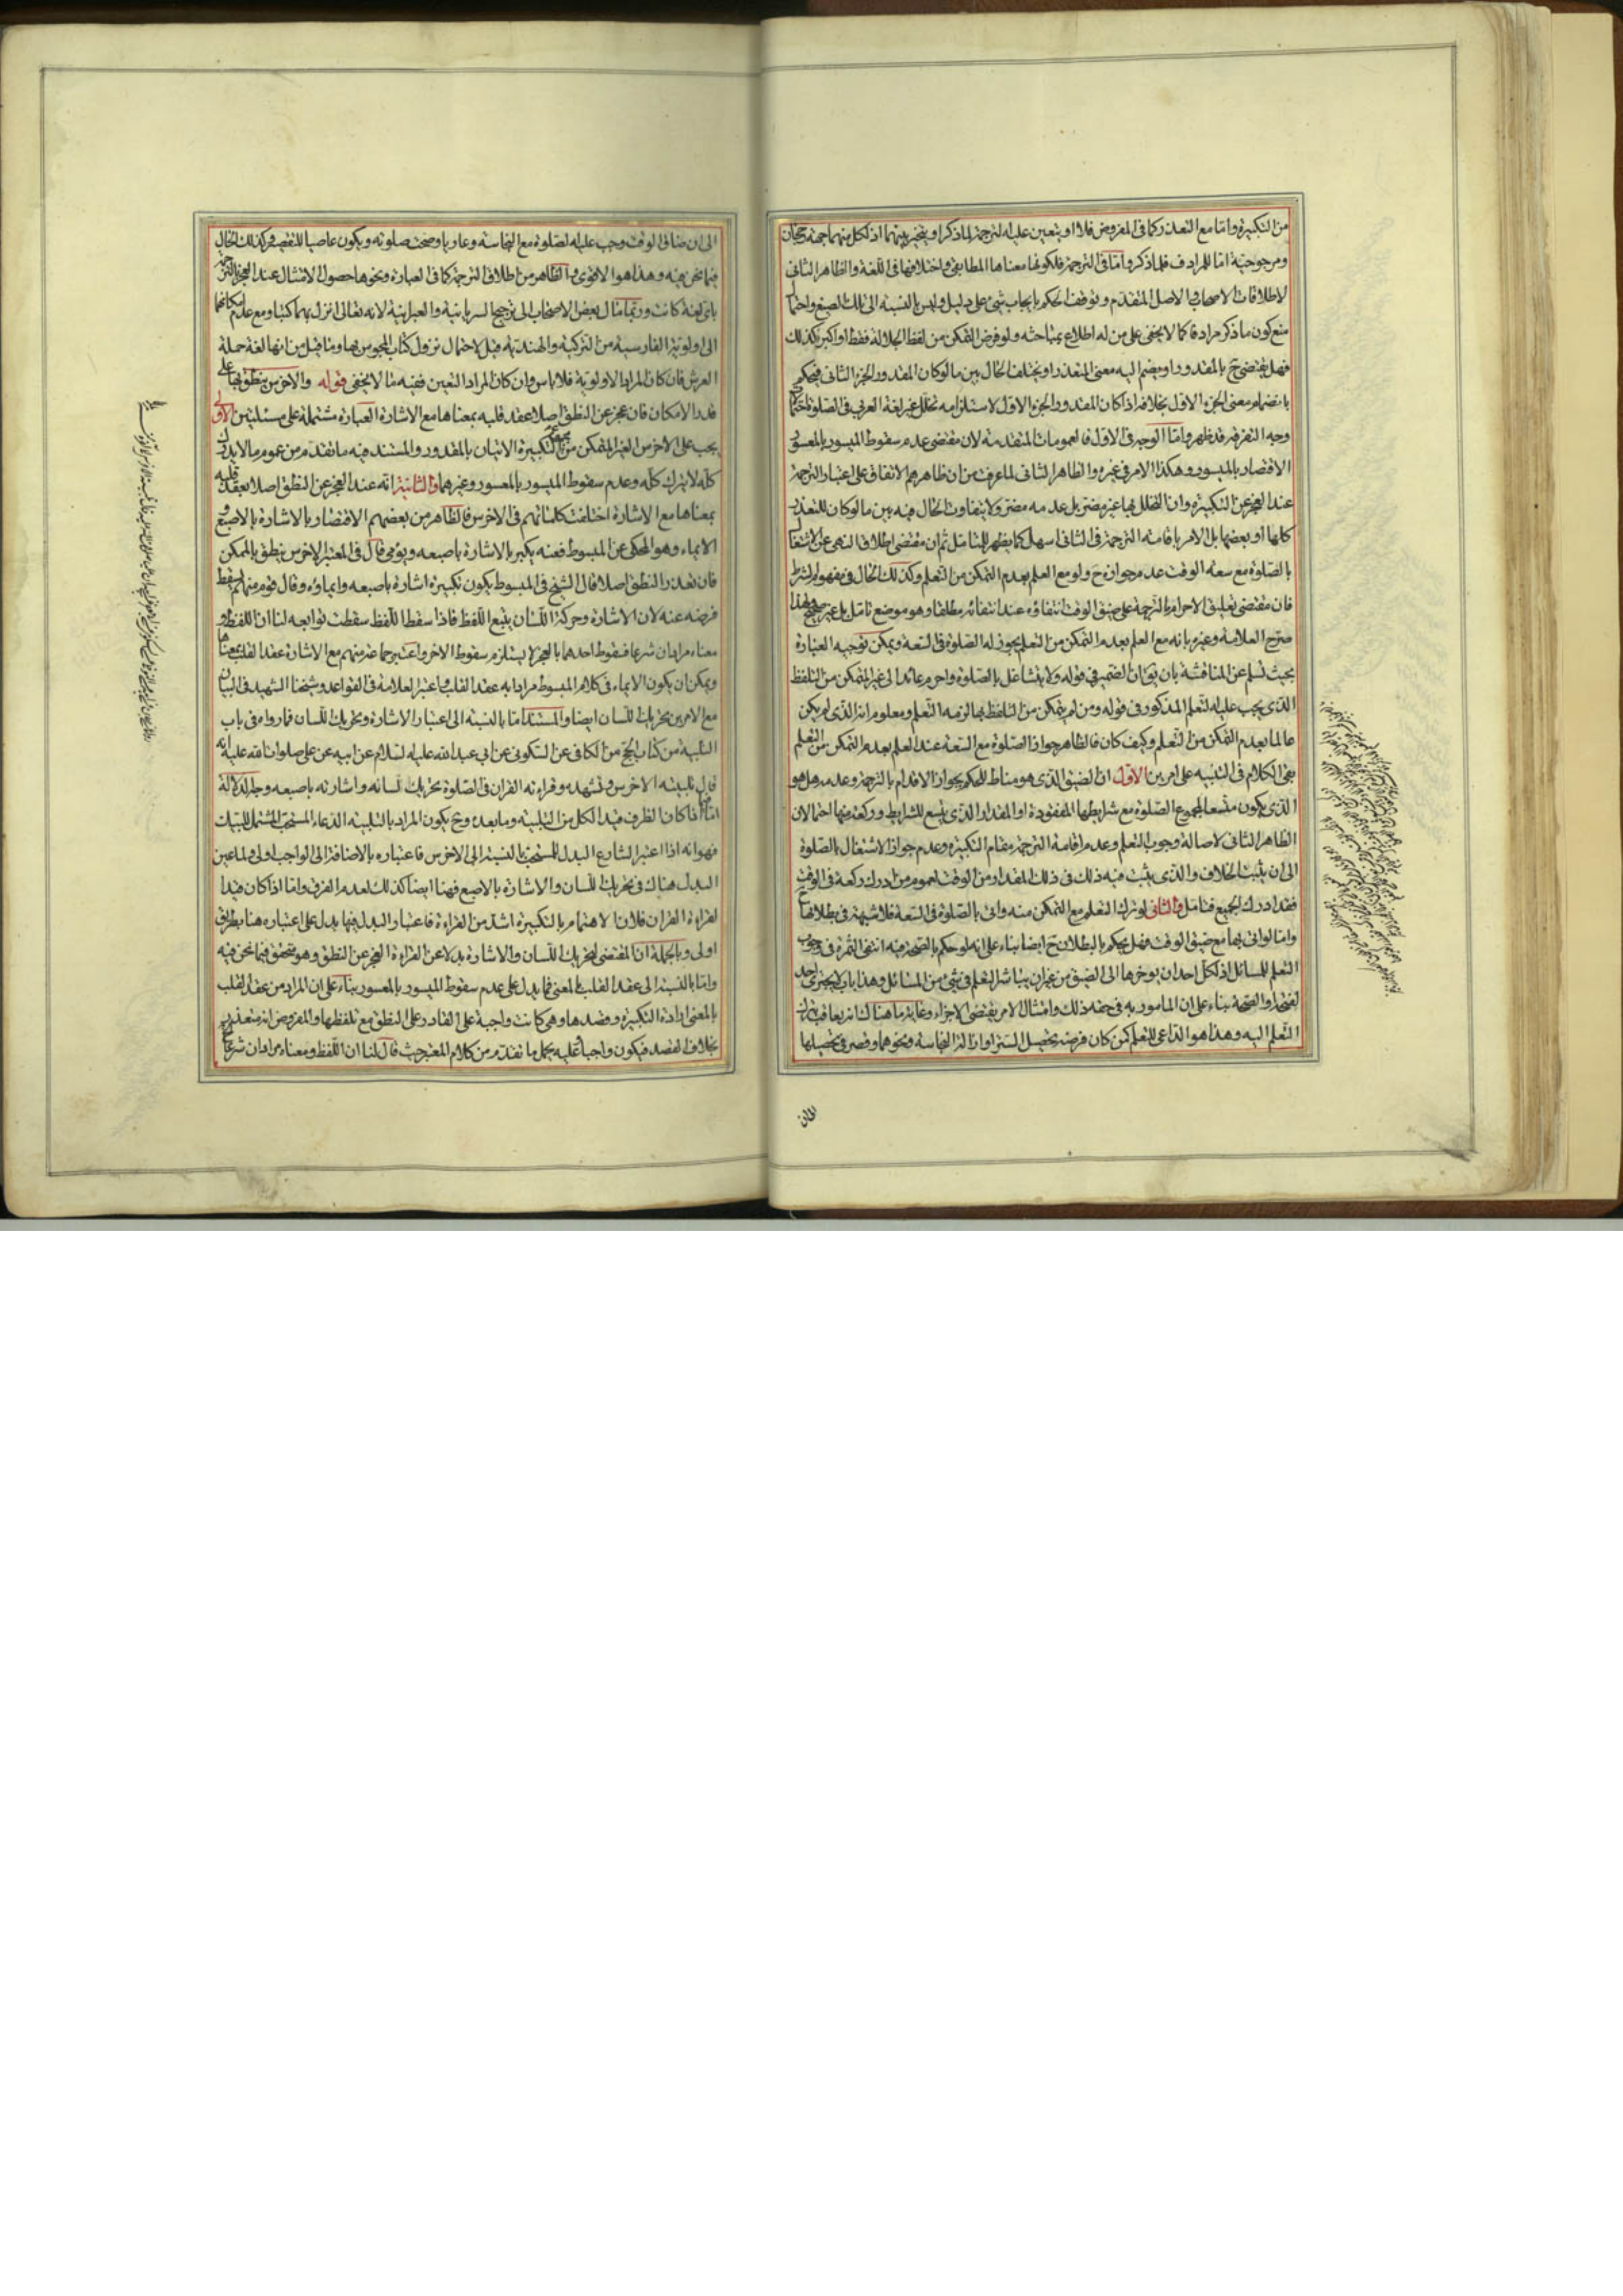 من التكبيرة واما مع التعذر كما فى المفروض فلا او يتعين عليه الترجمة لما ذكر او يتخير بينهما اذ لكل منهما جهة رجحان
ومرجوحية اما المرادف فلما ذكر واما فى الترجمة فلكونها معناها المطابقى واختلافها فى اللغة والظاهر الثانى
لاطلاقات الاصحاب والاصل المتقدم وتوقف الحكم بايجاب شئ على دليل وليس بالنسبة الى تلك الصيغ واحتمال
منع كون ما ذكر مرادفا كما لا يخفى على من له اطلاع بمباحثه ولو فرض التمكن من لفظ الجلالة فقط او اكبر كذلك
فهل يقتضى ح بالمقدور او يضم اليه معنى المتعذر او يختلف الحال بين ما لو كان المقدور الجزء الثانى فيحكم
بانضمام معنى الجزء الاول بخلافه اذا كان المقدور الجزء الاول لاستلزامه تخلل غير لغة العربى فى الصلوة
وجه التفرقة قد ظهر واما الوجه فى الاول فالعمومات المتقدمة لان مقتضى عدم سقوط الميسور بالمعسور
الاقتصار بالميسور وهكذا الامر فى غيره والظاهر الثانى لما عرفت من ان ظاهرهم الاتفاق على اعتبار الترجمة
عند العجز عن التكبيرة وان التخلل بها غير مضر بل عدمه مضر ولا يتفاوت الحال فيه بين ما لو كان للتعذر
كلها او بعضها بل الامر باقامة الترجمة فى الثانى اسهل كما يظهر للتامل ثم ان مقتضى اطلاق النهى عن الاشتغال
بالصلوة مع سعة الوقت عدم جوازه ح ولو مع العلم بعدم التمكن من التعلم وكذلك الحال فى مفهوم الشرط
فان مقتضى تعليق الاحرام بالترجمة على ضيق الوقت انتفاؤه عند انتفائه مطلقا وهو موضع تامل بل غير صحيح
صرح العلامة وغيره بانه مع العلم بعدم التمكن من التعلم يجوز له الصلوة فى السعة ويمكن توجيه العبارة
بحيث تسلم عن المناقشة بان يق ان الضمير فى قوله ولا يتشاغل بالصلوة واحرم عائد الى غير المتمكن من التلفظ
الذى يجب عليه التعلم المذكور فى قوله ومن لم يتمكن من التلفظ بها لزمه التعلم ومعلوم انه الذى لم يكن
عالما بعدم التمكن من التعلم وكيف كان فالظاهر جواز الصلوة مع السعة عند العلم بعدم التمكن من التعلم
بقى الكلام فى التنبيه على امرين الاول ان الضيق الذى هو مناط للحكم بجواز الاقدام بالترجمة وعدمه هل هو
الذى يكون متسعا لمجموع الصلوة مع شرايطها المفقودة او المقدار الذى يتسع للشرايط وركعة منها احتمالان
الظاهر الثانى لاصالة وجوب التعلم وعدم اقامة الترجمة مقام التكبيرة وعدم جواز الاشتغال بالصلوة
الى ان يثبت الخلاف والذى يثبت فيه ذلك فى ذلك المقدار من الوقت لعموم من ادرك ركعة فى الوقت
فقد ادرك الجميع فتامل والثانى لو ترك التعلم مع التمكن منه واتى بالصلوة فى السعة فلا شبهة فى بطلانها
واما لو اتى بها مع ضيق الوقت فهل يحكم بالبطلان ح ايضا بناء على انه لو حكم بالصحة فيه انتفى الثمرة فى وجوب
التعلم للسائل اذ لكل احد ان يوخرها الى الضيق من غير ان يباشر التعلم فى شئ من المسائل وهذا باب لا يجترى احد
لفتحه او الصحة بناء على ان المامور به فى حقه ذلك وامتثال الامر يقتضى الاجزاء وغاية ما هناك انه يعاقب بترك
التعلم اليه وهذا هو الداعى للتعلم كمن كان فرضه تحصيل الستر او ازالة النجاسة ونحوهما وقصر فى تحصيلها
الى ان
الى ان ضاق الوقت وجب عليه الصلوة مع النجاسة وعاريا وصحت صلوته ويكون عاصيا للتقصير وكذلك الحال
فيما نحن فيه وهذا هو الاقوى والظاهر من اطلاق الترجمة كما فى العبارة ونحوها حصول الامتثال عند العجز بالترجمة
باى لغة كانت وربما مال بعض الاصحاب الى ترجيح السريانية والعبرانية لانه تعالى انزل بهما كتبا ومع عدم امكانهما
الى اولوية الفارسية من التركية والهندية قيل لاحتمال نزول كتاب المجوس بها وما قيل من انها لغة حملة
العرش فان كان المراد الاولوية فلا باس وان كان المراد التعين ففيه ما لا يخفى قوله والاخرس ينطق بها على
قدر الامكان فان عجز عن النطق اصلا عقد قلبه بمعناها مع الاشارة العبارة مشتملة على مسئلتين الاولى
يجب على الاخرس الغير المتمكن من مجموع التكبيرة الاتيان بالمقدور والمستند فيه ما تقدم من عموم ما لا يدرك
كله لا يترك كله وعدم سقوط الميسور بالمعسور وغيرهما والثانية انه عند العجز عن النطق اصلا يعقد قلبه
بمعناها مع الاشارة اختلفت كلماتهم فى الاخرس فالظاهر من بعضهم الاقتصار بالاشارة بالاصبع و
الايماء وهو المحكى عن المبسوط فعنه يكبر بالاشارة باصبعه ويومى قال فى المعتبر الاخرس ينطق بالممكن
فان تعذر النطق اصلا قال الشيخ فى المبسوط يكون تكبيره اشارة باصبعه وايماؤه وقال قوم منهم سقط
فرضه عنه لان الاشارة وحركة اللسان يتبع اللفظ فاذا سقط اللفظ سقطت توابعه لنا ان اللفظ و
معناه مرادان شرعا فسقوط احدهما بالعجز لا يستلزم سقوط الاخر واعتبر جماعة منهم مع الاشارة عقد القلب بمعناها
ويمكن ان يكون الايماء فى كلام المبسوط مرادا به عقد القلب واعتبر العلامة فى القواعد وشيخنا الشهيد فى البيان
مع الامرين تحريك اللسان ايضا والمستند اما بالنسبة الى اعتبار الاشارة وتحريك اللسان فما رواه فى باب
التلبية من كتاب الحج من الكافى عن السكونى عن ابى عبد الله عليه السلام عن ابيه عن على صلوات الله عليه انه
قال تلبية الاخرس وتشهده وقراءته القران فى الصلوة تحريك لسانه واشارته باصبعه وجه الدلالة
اما اذا كان الظرف قيدا لكل من التلبية وما بعده وح يكون المراد بالتلبية الدعاء المستحب المشتمل للتبيك
فهو انه اذا اعتبر الشارع البدل للمستحب بالنسبة الى الاخرس فاعتباره بالاضافة الى الواجب اولى ولما عين
البدل هناك فى تحريك اللسان والاشارة بالاصبع فهنا ايضا كذلك لعدم الفرق واما اذا كان قيدا
لقراءة القران فلان الاهتمام بالتكبيرة اشد من القراءة فاعتبار البدل فيها يدل على اعتباره هنا بطريق
اولى وبالجملة ان المقتضى لتحريك اللسان والاشارة بدلا عن القراءة العجز عن النطق وهو متحقق فيما نحن فيه
واما بالنسبة الى عقد القلب بالمعنى فما يدل على عدم سقوط الميسور بالمعسور بناء على ان المراد من عقد القلب
بالمعنى ارادة التكبيرة وقصدها وهى كانت واجبة على القادر على النطق مع تلفظها والمفروض انه متعذر
بخلاف القصد فيكون واجبا عليه يحمل ما تقدم من كلام المعتبر حيث قال لنا ان اللفظ ومعناه مرادان شرعا